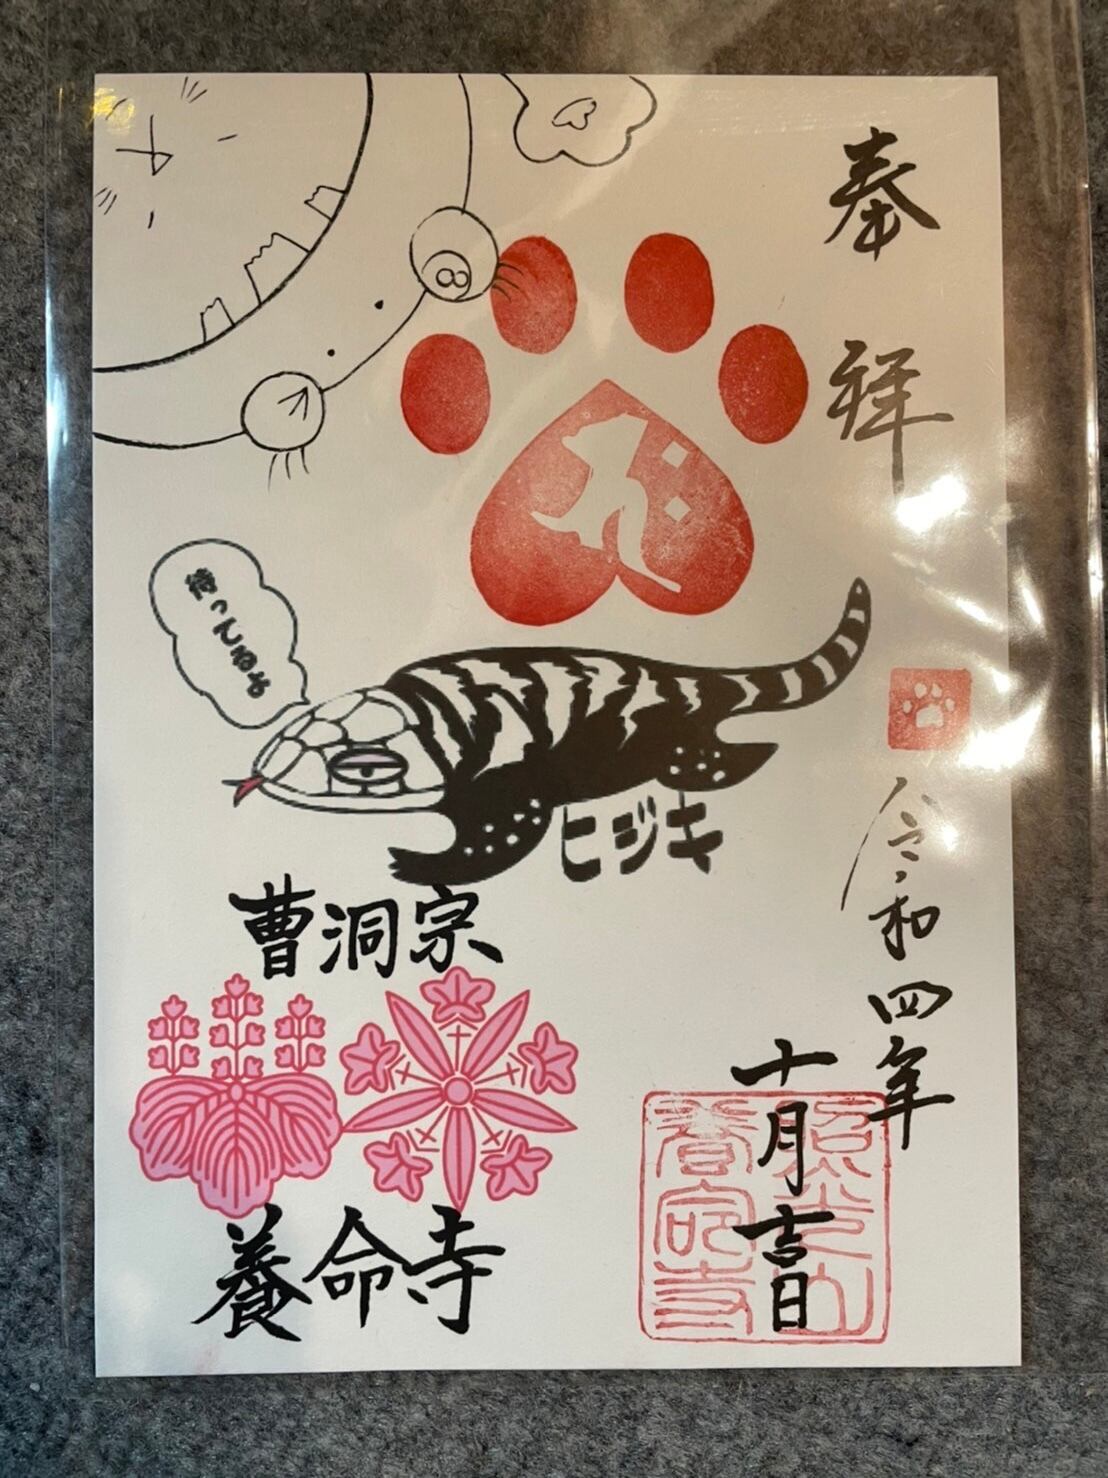 奉拝
令和四年
十月吉日
待ってるよ
ヒジキ
曹洞宗
養命寺
照光山
養命寺